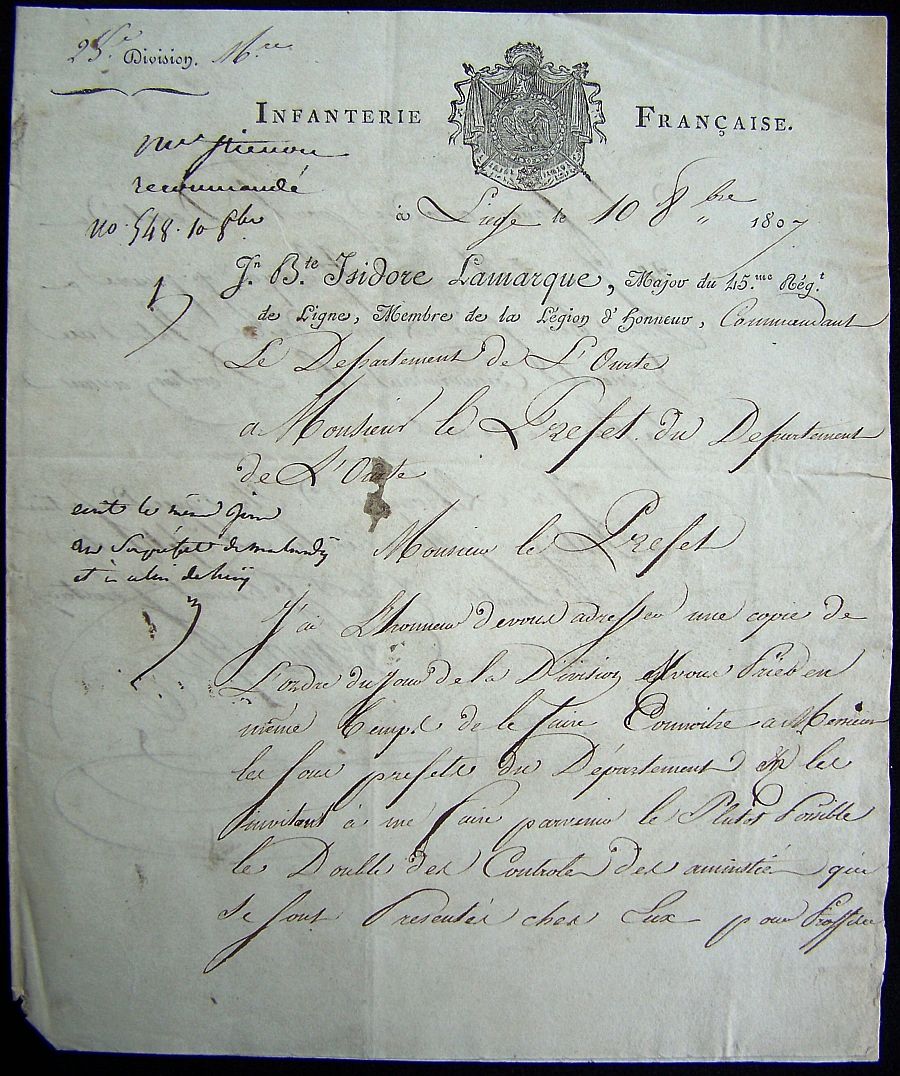 25.e Division. Mre
INFANTERIE FRANÇAISE.
recommandé
no. 548. 10 8bre
à Liege le 10 8bre 1807
J.n B.te Isidore Lamarque, Major du 45.me Rég.t
de Ligne, Membre de la Légion d'honneur, Commandant
Le Departement de L'Ourte
a Monsieur le Prefet du Departement
de L'Ourte
ecrit le même jour
au Souspréfet de malmedy
et à celui de huy
Monsieur le Prefet
J'ai L'honneur de vous adresser une copie de
L'ordre du Jour de la Division & vous Prier en
même temps de le faire Connoitre a Messieurs
les sous prefets du Département en les
invitant à me faire parvenir le Plutot Possible
le Double des Controles des amnistiés qui
se sont Presentés chez Eux pour Proffiter